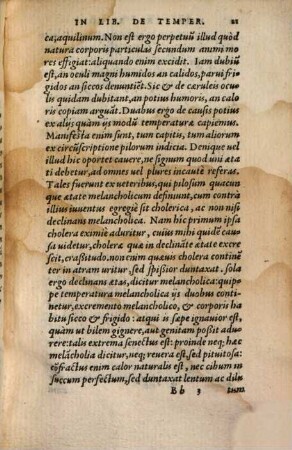 IN LIB. DE TEMPER. 21
ca; aquilinum. Non est ergo perpetuũ illud quòd
natura corporis particulas secundum animi mo
res effigiat: aliquando enim excidit. Iam dubiũ
est, an oculi magni humidos an calidos, parui fri
gidos an siccos denuntiẽt. Sic & de cæruleis ocu
lis quidam dubitant, an potius humoris, an calo
ris copiam arguãt. Duabus ergo de causis potius
ex alijs quàm ijs modũ temperaturæ capiemus.
Manifesta enim sunt, tum capitis, tum aliorum
ex circũscriptione pilorum indicia. Denique uel
illud hic oportet cauere, ne signum quod uni æta
ti debetur, ad omnes uel plures incautè referas.
Tales fuerunt ex ueteribus, qui pilosum quacun
que ætate melancholicum definiunt, cum contrà
illius iuuentus egregiè sit cholerica, ac non nisi
declinans melancholica. Nam hic primum ipsa
cholera eximiè aduritur, cuius mihi quidẽ cau
sa uidetur, choleræ quæ in declinãte ætate excre
scit, crassitudo. non enim quæuis cholera contine
ter in atram uritur, sed spißior duntaxat. sola
ergo declinans ætas, dicitur melancholica: quip
pe temperatura melancholica ijs duobus conti
netur, excremento melancholico, & corporis ha
bitu sicco & frigido: atqui is sæpe ignauior est,
quàm ut bilem gignere, aut genitam poßit adu
rere: talis extrema senectus est: proinde neq; hæc
melãcholia dicitur, neq; reuera est, sed pituitosa:
effractus enim calor naturalis est, nec cibum in
succum perfectum, sed duntaxat lentum ac dilu
Bb 3 tum